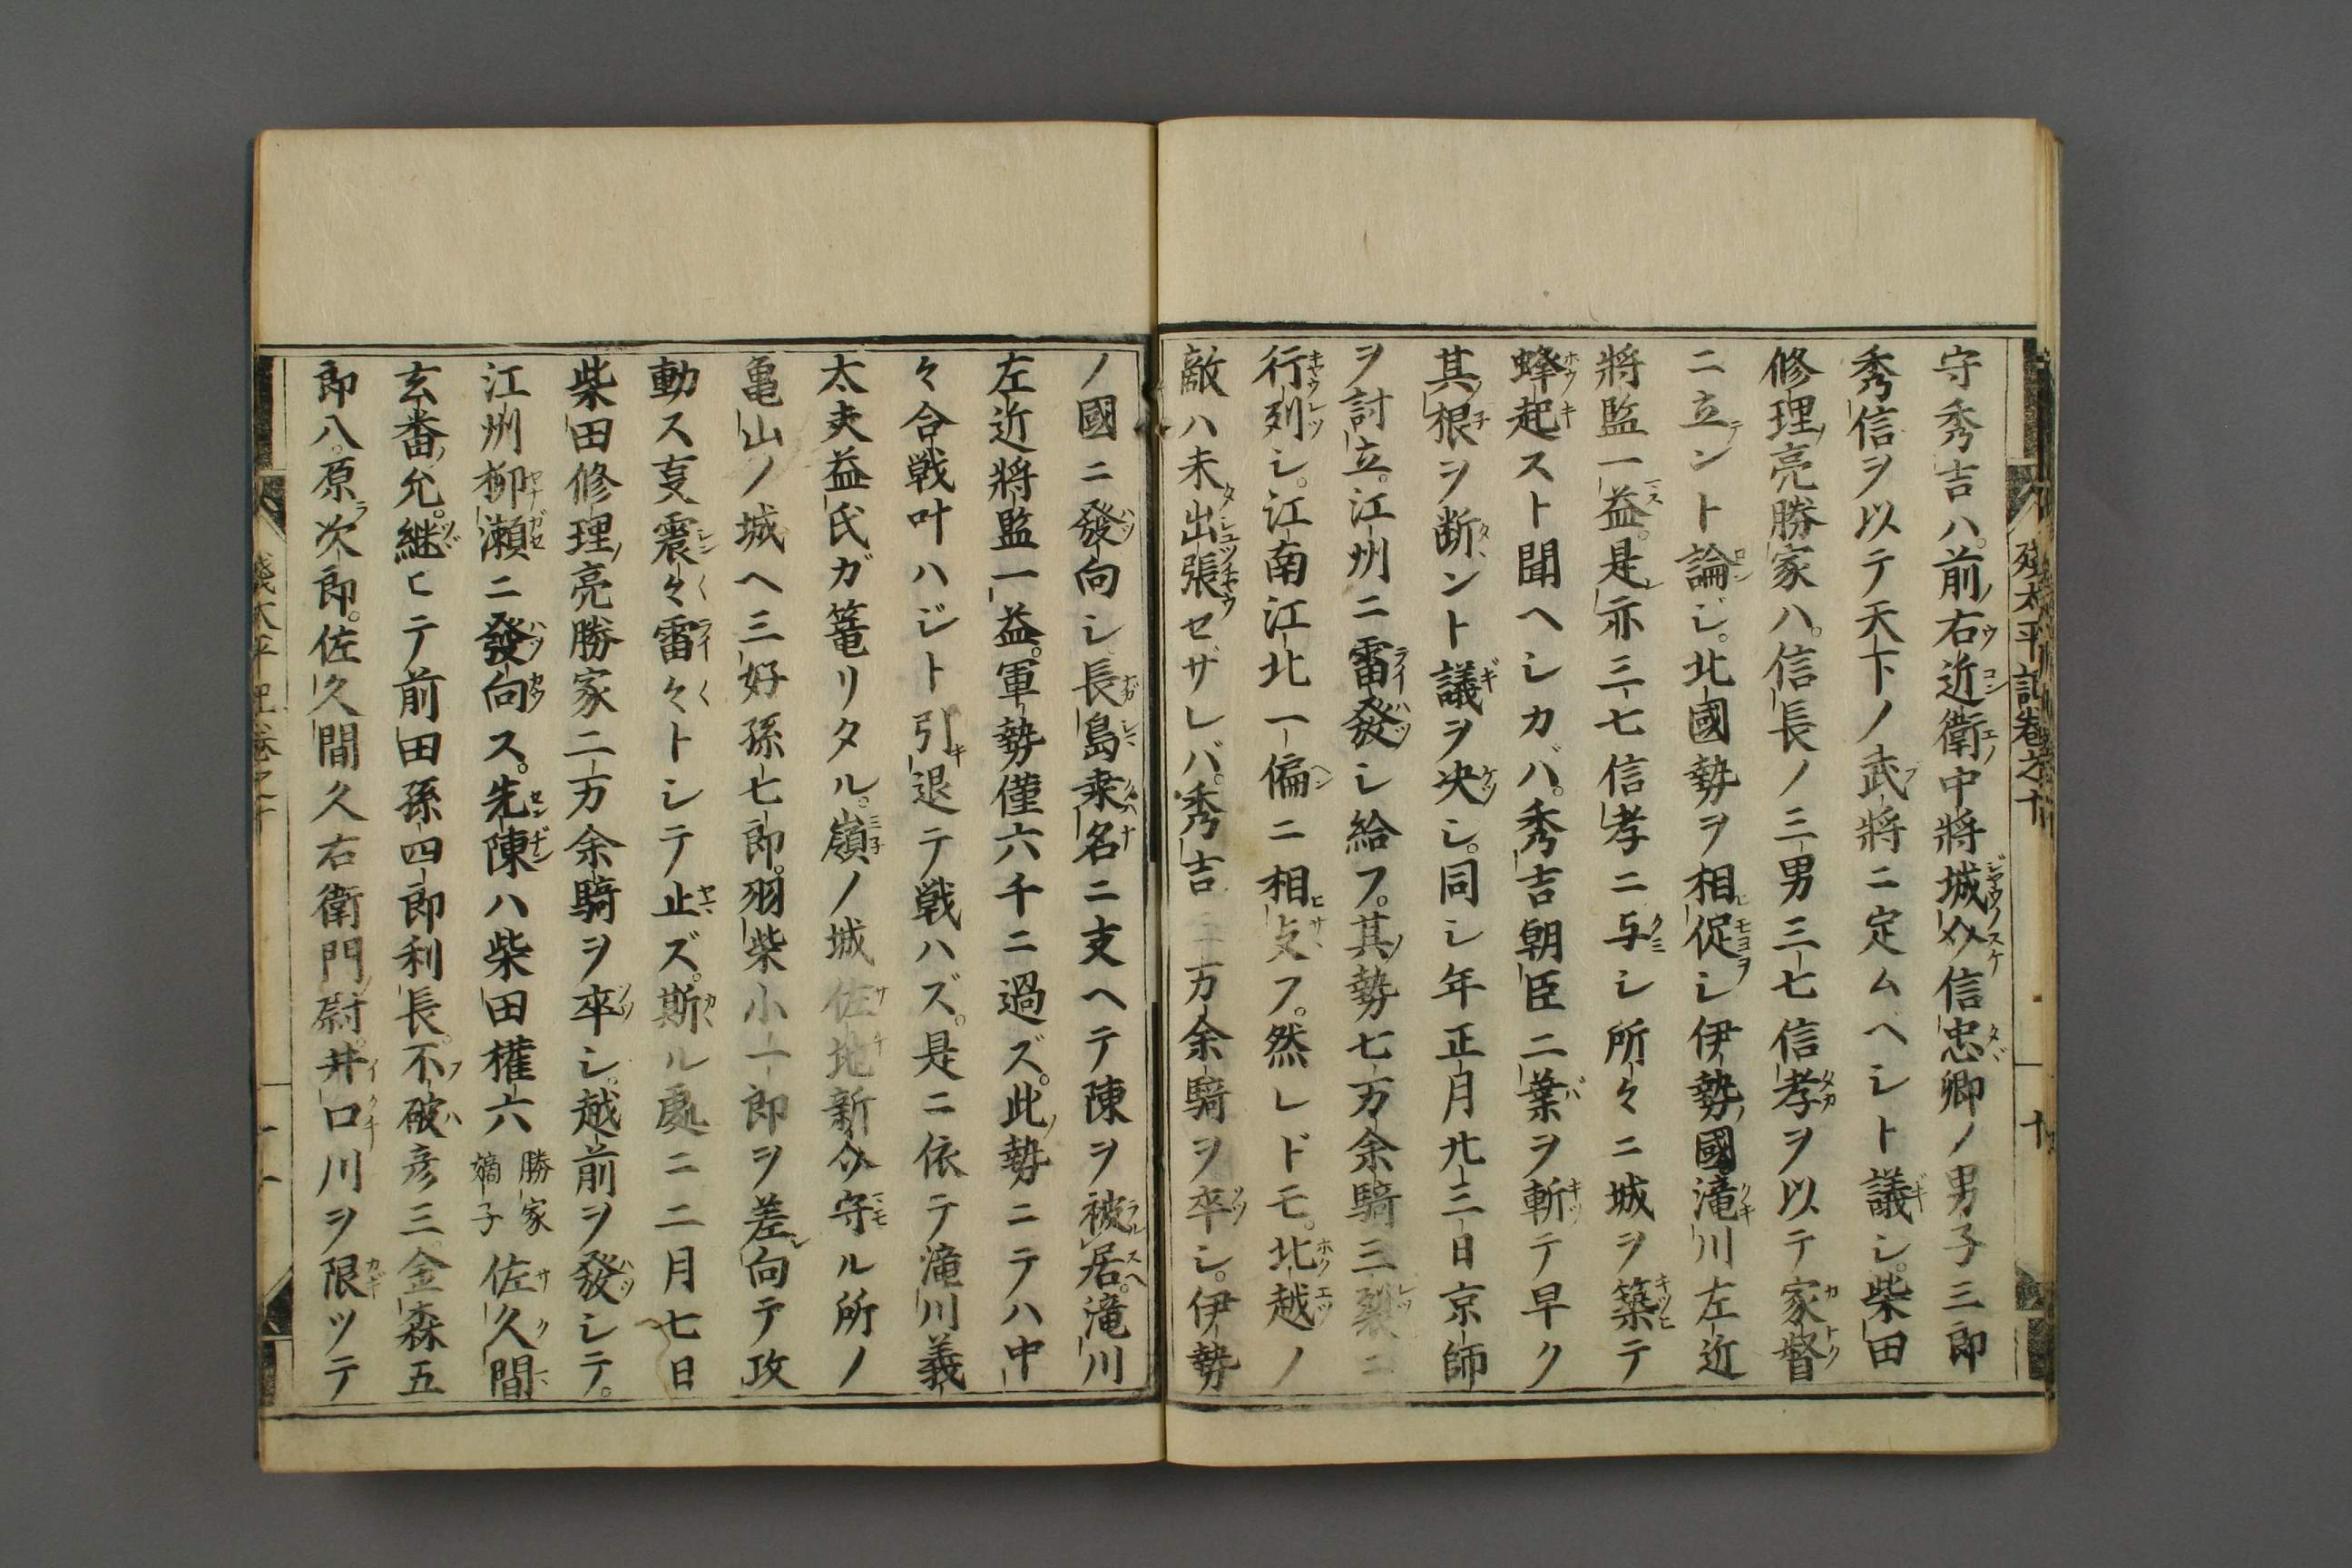 残太平記巻之十
十
守秀吉ハ。前ノ右近衛中將城ノ介信忠卿ノ男子三郎
秀信ヲ以テ天下ノ武將ニ定ムベシト議シ。柴田
修理ノ亮勝家ハ。信長ノ三男三七信孝ヲ以テ家督
ニ立ント論ジ。北國勢ヲ相促シ伊勢ノ國滝川左近
將監一益。是レ亦三七信孝ニ与シ所々ニ城ヲ築テ
蜂起スト聞ヘシカバ。秀吉朝臣二葉ヲ斬テ早ク
其ノ根ヲ断ント議ヲ决シ。同シ年正月廿三日京師
ヲ討立。江州ニ雷發シ給フ。其ノ勢七万余騎三裂ニ
行列シ。江南江北一偏ニ相支フ。然レドモ。北越ノ
敵ハ未出張セザレバ。秀吉三万余騎ヲ卒シ。伊勢
ノ國ニ發向シ長島桒名ニ支ヘテ陳ヲ被居。滝川
左近將監一益。軍勢僅六千ニ過ズ。此ノ勢ニテハ中
々合戦叶ハジト引退テ戦ハズ。是ニ依テ滝川義
太夫益氏ガ篭リタル。嶺ノ城佐地新介守ル所ノ
亀山ノ城ヘ三好孫七郎。羽柴小一郎ヲ差向テ攻
動ス㕝震々雷々トシテ止ズ。斯ル處ニ二月七日
柴田修理ノ亮勝家二万余騎ヲ卒シ。越前ヲ發シテ。
江州柳瀬ニ發向ス。先陳ハ柴田權六勝家嫡子佐久間
玄番ノ允。継ヒテ前田孫四郎利長。不破彦三。金森五
郎八。原次郎。佐久間久右衛門ノ尉。井口川ヲ限ツテ
残太平記巻之十
十一